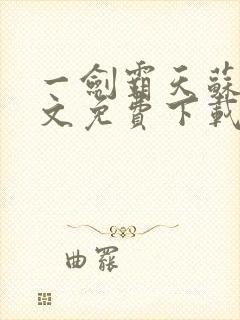 一劍霸天蘇
文免費下載
曲罷